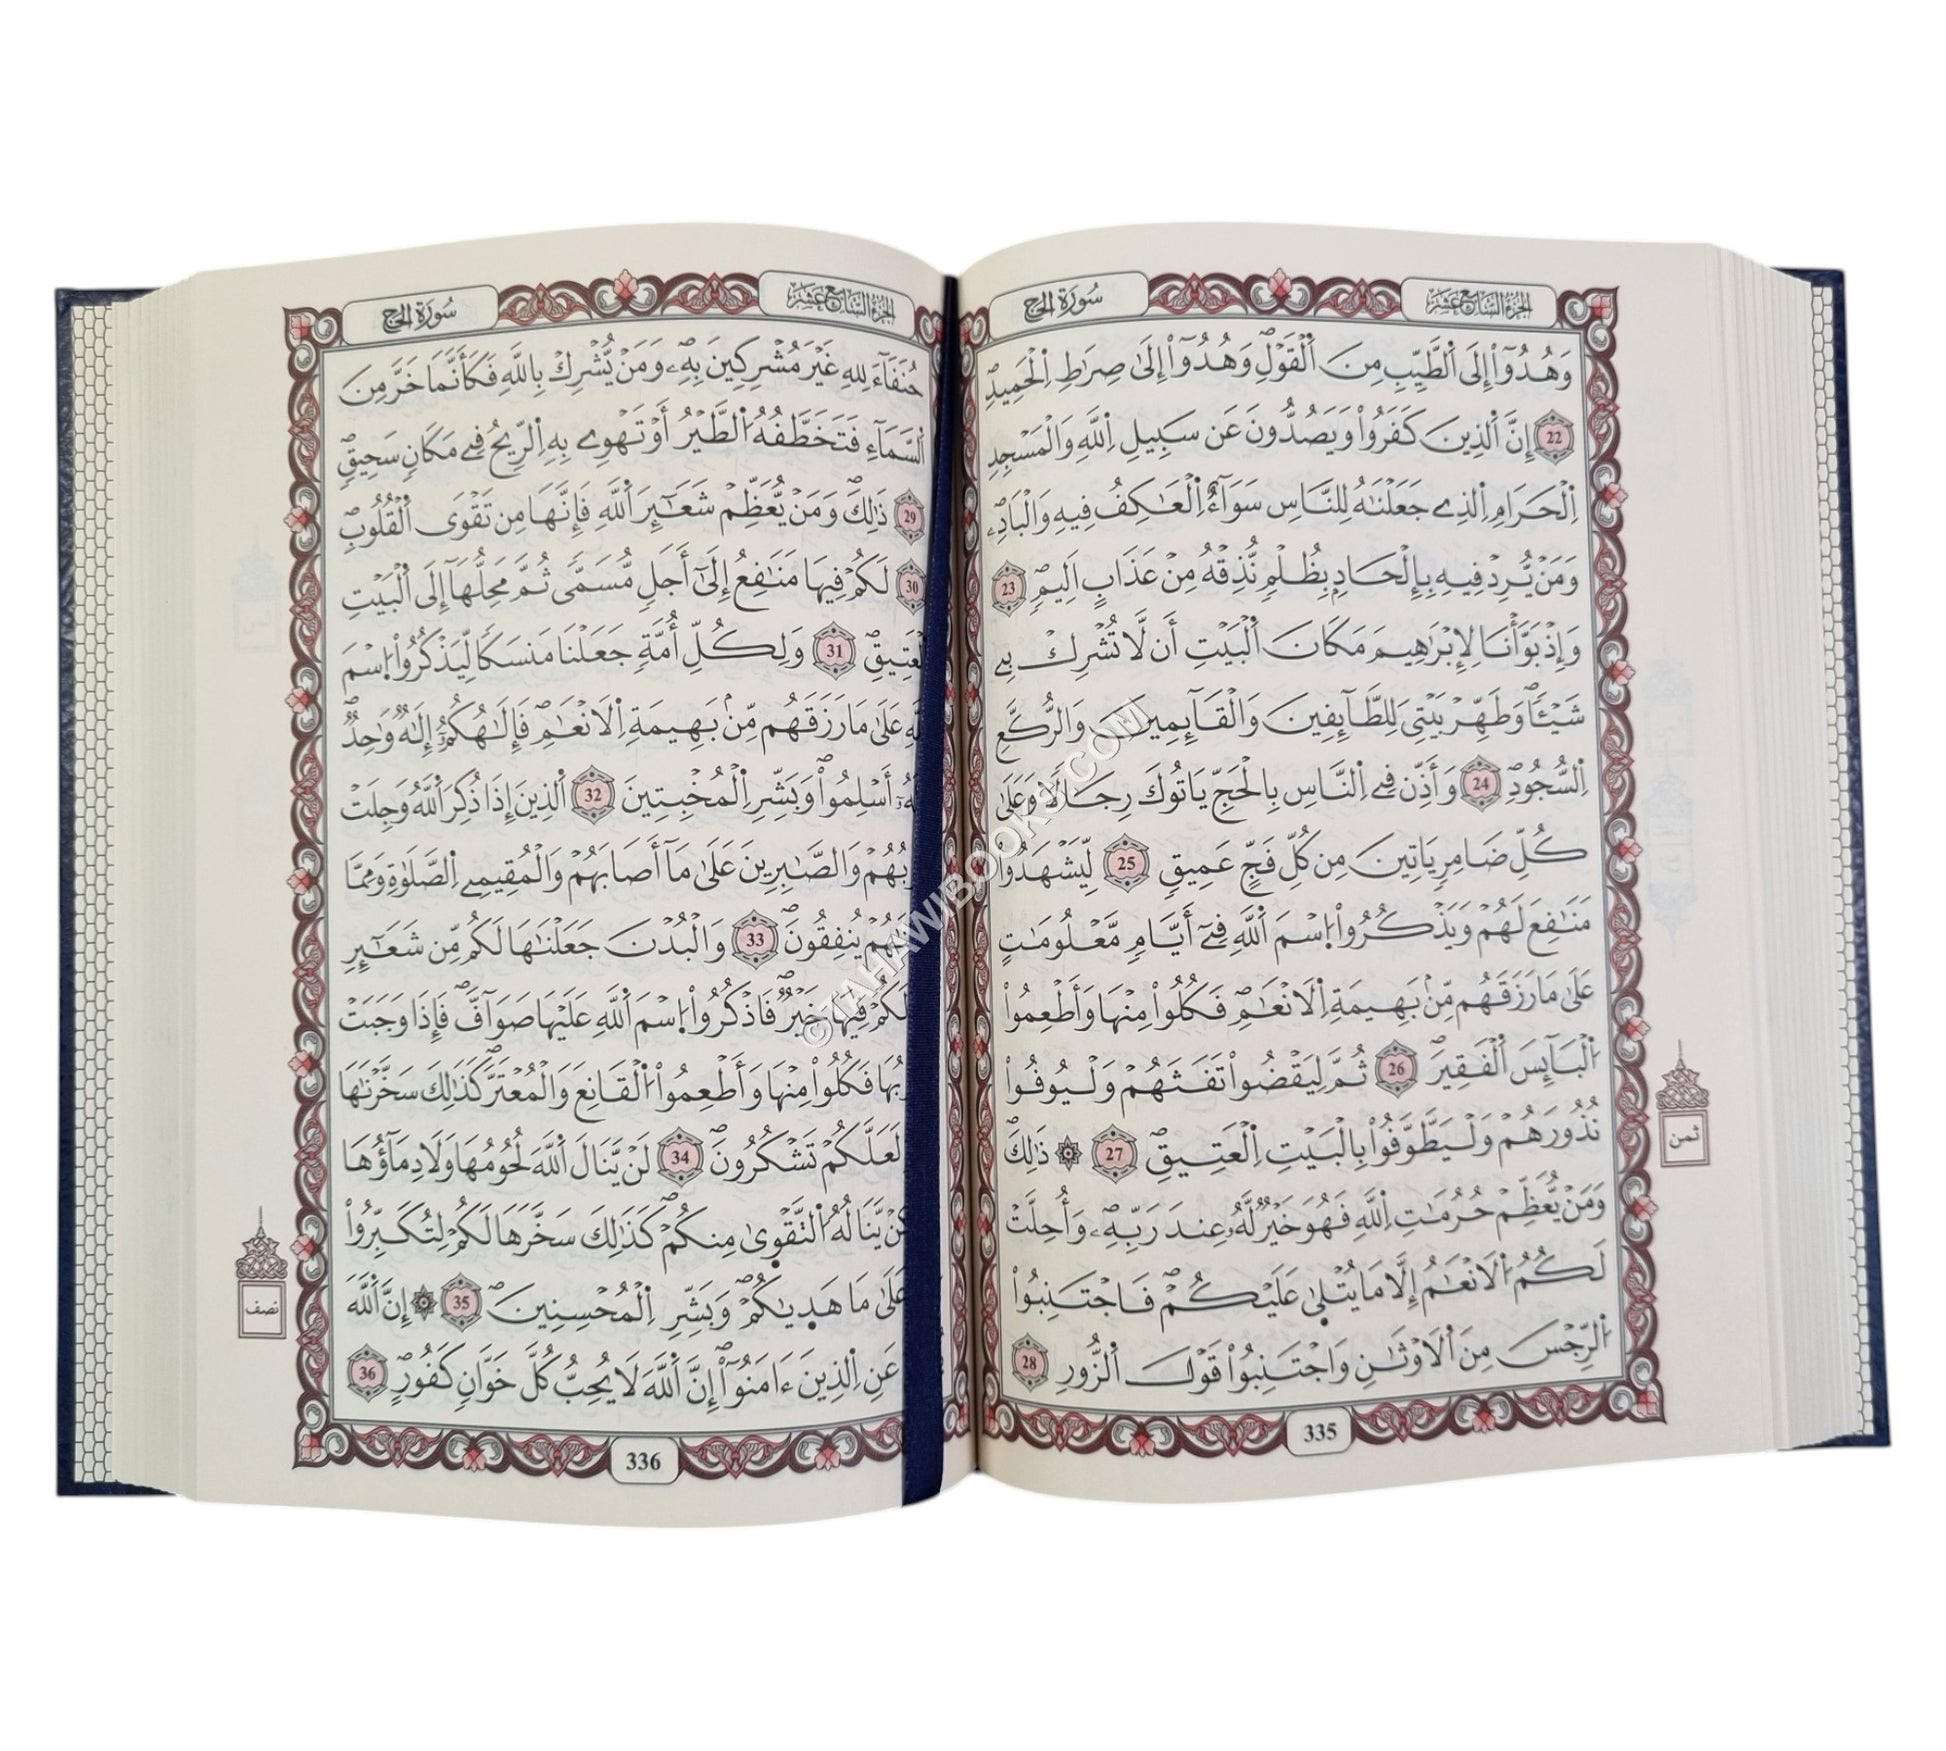 سُورَةُ الحَجِّ
الجُزْءُ السَّابِعَ عَشَرَ
وَهُدُوٓاْ إِلَى اَ۬لطَّيِّبِ مِنَ اَ۬لْقَوْلِۖ وَهُدُوٓاْ إِلَىٰ صِرَٰطِ اِ۬لْحَمِيدِۖ
22 إِنَّ اَ۬لذِينَ كَفَرُواْ وَيَصُدُّونَ عَن سَبِيلِ اِ۬للَّهِ وَالْمَسْجِدِ
اِ۬لْحَرَامِ اِ۬لذِے جَعَلْنَٰهُ لِلنَّاسِ سَوَآءٌ اُ۬لْعَٰكِفُ فِيهِ وَالْبَادِۦۖ
وَمَنْ يُّرِدْ فِيهِ بِإِلْحَادِۢ بِظُلْمٖ نُّذِقْهُ مِنْ عَذَابٍ اَلِيمٖۖ 23
وَإِذْ بَوَّأْنَا لِإِبْرَٰهِيمَ مَكَانَ اَ۬لْبَيْتِ أَن لَّا تُشْرِكْ بِے
شَيْـٔاٗۖ وَطَهِّرْ بَيْتِيَ لِلطَّآئِفِينَ وَالْقَآئِمِينَ وَالرُّكَّعِ
اِ۬لسُّجُودِۖ 24 وَأَذِّن فِے اِ۬لنَّاسِ بِالْحَجِّ يَاتُوكَ رِجَالاٗ وَعَلَىٰ
كُلِّ ضَامِرٖ يَاتِينَ مِن كُلِّ فَجٍّ عَمِيقٖ 25 لِّيَشْهَدُواْ
مَنَٰفِعَ لَهُمْ وَيَذْكُرُواْ اُ۪سْمَ اَ۬للَّهِ فِےٓ أَيَّامٖ مَّعْلُومَٰتٍ
عَلَىٰ مَا رَزَقَهُم مِّنۢ بَهِيمَةِ اِ۬لَانْعَٰمِۖ فَكُلُواْ مِنْهَا وَأَطْعِمُواْ
اُ۬لْبَآئِسَ اَ۬لْفَقِيرَۖ 26 ثُمَّ لْيَقْضُواْ تَفَثَهُمْ وَلْيُوفُواْ
نُذُورَهُمْ وَلْيَطَّوَّفُواْ بِالْبَيْتِ اِ۬لْعَتِيقِۖ 27 ۞ ذَٰلِكَۖ
وَمَنْ يُّعَظِّمْ حُرُمَٰتِ اِ۬للَّهِ فَهُوَ خَيْرٞ لَّهُۥ عِندَ رَبِّهِۦۖ وَأُحِلَّتْ
لَكُمُ اُ۬لَانْعَٰمُ إِلَّا مَا يُتْلَىٰ عَلَيْكُمْۖ فَاجْتَنِبُواْ
اُ۬لرِّجْسَ مِنَ اَ۬لَاوْثَٰنِ وَاجْتَنِبُواْ قَوْلَ اَ۬لزُّورِ 28
335
ثمن
سُورَةُ الحَجِّ
الجُزْءُ السَّابِعَ عَشَرَ
حُنَفَآءَ لِلهِ غَيْرَ مُشْرِكِينَ بِهِۦۖ وَمَنْ يُّشْرِكْ بِاللَّهِ فَكَأَنَّمَا خَرَّ مِنَ
اَ۬لسَّمَآءِ فَتَخَطَّفُهُ اُ۬لطَّيْرُ أَوْ تَهْوِے بِهِ اِ۬لرِّيحُ فِے مَكَانٖ سَحِيقٖۖ
29 ذَٰلِكَۖ وَمَنْ يُّعَظِّمْ شَعَٰٓئِرَ اَ۬للَّهِ فَإِنَّهَا مِن تَقْوَى اَ۬لْقُلُوبِۖ
30 لَكُمْ فِيهَا مَنَٰفِعُ إِلَىٰٓ أَجَلٖ مُّسَمّىٗ ثُمَّ مَحِلُّهَآ إِلَى اَ۬لْبَيْتِ
اِ۬لْعَتِيقِۖ 31 وَلِكُلِّ أُمَّةٖ جَعَلْنَا مَنسَكاٗ لِّيَذْكُرُواْ اُ۪سْمَ
اَ۬للَّهِ عَلَىٰ مَا رَزَقَهُم مِّنۢ بَهِيمَةِ اِ۬لَانْعَٰمِۖ فَإِلَٰهُكُمُۥٓ إِلَٰهٞ وَٰحِدٞۖ
أَسْلِمُواْۖ وَبَشِّرِ اِ۬لْمُخْبِتِينَ 32 اَ۬لذِينَ إِذَا ذُكِرَ اَ۬للَّهُ وَجِلَتْ
وَالصَّٰبِرِينَ عَلَىٰ مَآ أَصَابَهُمْ وَالْمُقِيمِے اِ۬لصَّلَوٰةِ وَمِمَّا
يُنفِقُونَۖ 33 وَالْبُدْنَ جَعَلْنَٰهَا لَكُم مِّن شَعَٰٓئِرِ
لَكُمْ فِيهَا خَيْرٞۖ فَاذْكُرُواْ اُ۪سْمَ اَ۬للَّهِ عَلَيْهَا صَوَآفَّۖ فَإِذَا وَجَبَتْ
فَكُلُواْ مِنْهَا وَأَطْعِمُواْ اُ۬لْقَانِعَ وَالْمُعْتَرَّۖ كَذَٰلِكَ سَخَّرْنَٰهَا
لَعَلَّكُمْ تَشْكُرُونَۖ 34 لَنْ يَّنَالَ اَ۬للَّهَ لُحُومُهَا وَلَا دِمَآؤُهَا
يَّنَالُهُ اُ۬لتَّقْوَىٰ مِنكُمْۖ كَذَٰلِكَ سَخَّرَهَا لَكُمْ لِتُكَبِّرُواْ
عَلَىٰ مَا هَدَىٰكُمْۖ وَبَشِّرِ اِ۬لْمُحْسِنِينَۖ 35 ۞ إِنَّ اَ۬للَّهَ
عَنِ اِ۬لذِينَ ءَامَنُوٓاْۖ إِنَّ اَ۬للَّهَ لَا يُحِبُّ كُلَّ خَوَّانٖ كَفُورٍۖ 36
336
نصف
© TAHAWIBOOKS.COM